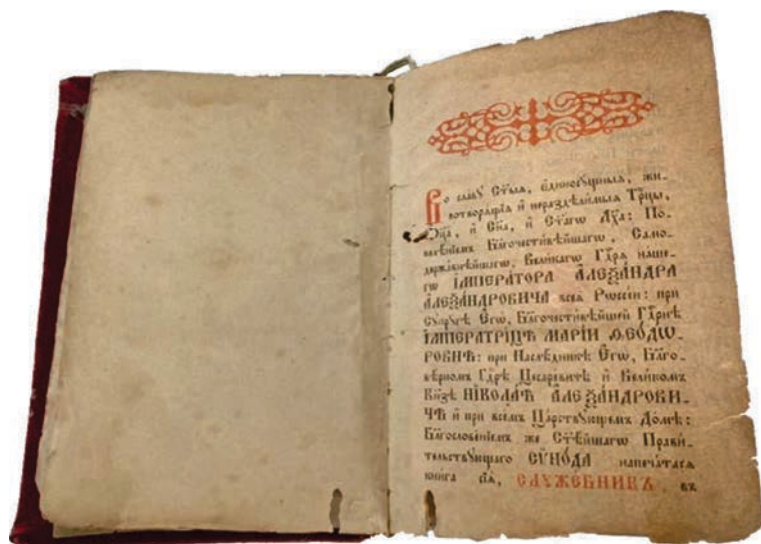 Во славу Ст҃ыѧ, є҆диносу́щныѧ, жи-
вотворѧ́щїѧ и҆ нераздѣ́лимыѧ Трⷪ҇цы,
Ѻ҆ц҃а̀, и҆ Сн҃а, и҆ Ст҃а́гѡ Дх҃а: По-
велѣ́нїемъ Бл҃гочести́вѣйшагѡ, Само-
держа́внѣйшагѡ, Вели́кагѡ Гдⷭ҇рѧ на́ше-
гѡ І҆МПЕРА́ТОРА А҆ЛЕѮА́НДРА
А҆ЛЕѮА́НДРОВИЧА всеѧ̀ Рѡссі́и: при
сꙋпрꙋ́гѣ Є҆гѡ̀, Бл҃гочести́вѣйшей Гдⷭ҇рнѣ
І҆МПЕРАТРИ́ЦѢ МАРІ́И Ѳ҆ЕО́ДѠ-
РОВНѢ: при Наслѣ́дникѣ Є҆гѡ̀, Бл҃го-
вѣ́рномъ Гдⷭ҇рѣ Цесаре́вичѣ и҆ Вели́комъ
Кнѧ́зѣ НІКОЛА́Ѣ А҆ЛЕѮА́НДРОВИ-
ЧѢ и҆ при все́мъ Ца́рствꙋющемъ До́мѣ:
Бл҃гослове́нїемъ же Ст҃ѣ́йшагѡ Прави́-
тельствꙋющаго СѴНО́ДА напеча́тасѧ
кни́га сїѧ̀, СЛꙊЖЕ́БНИКЪ, въ